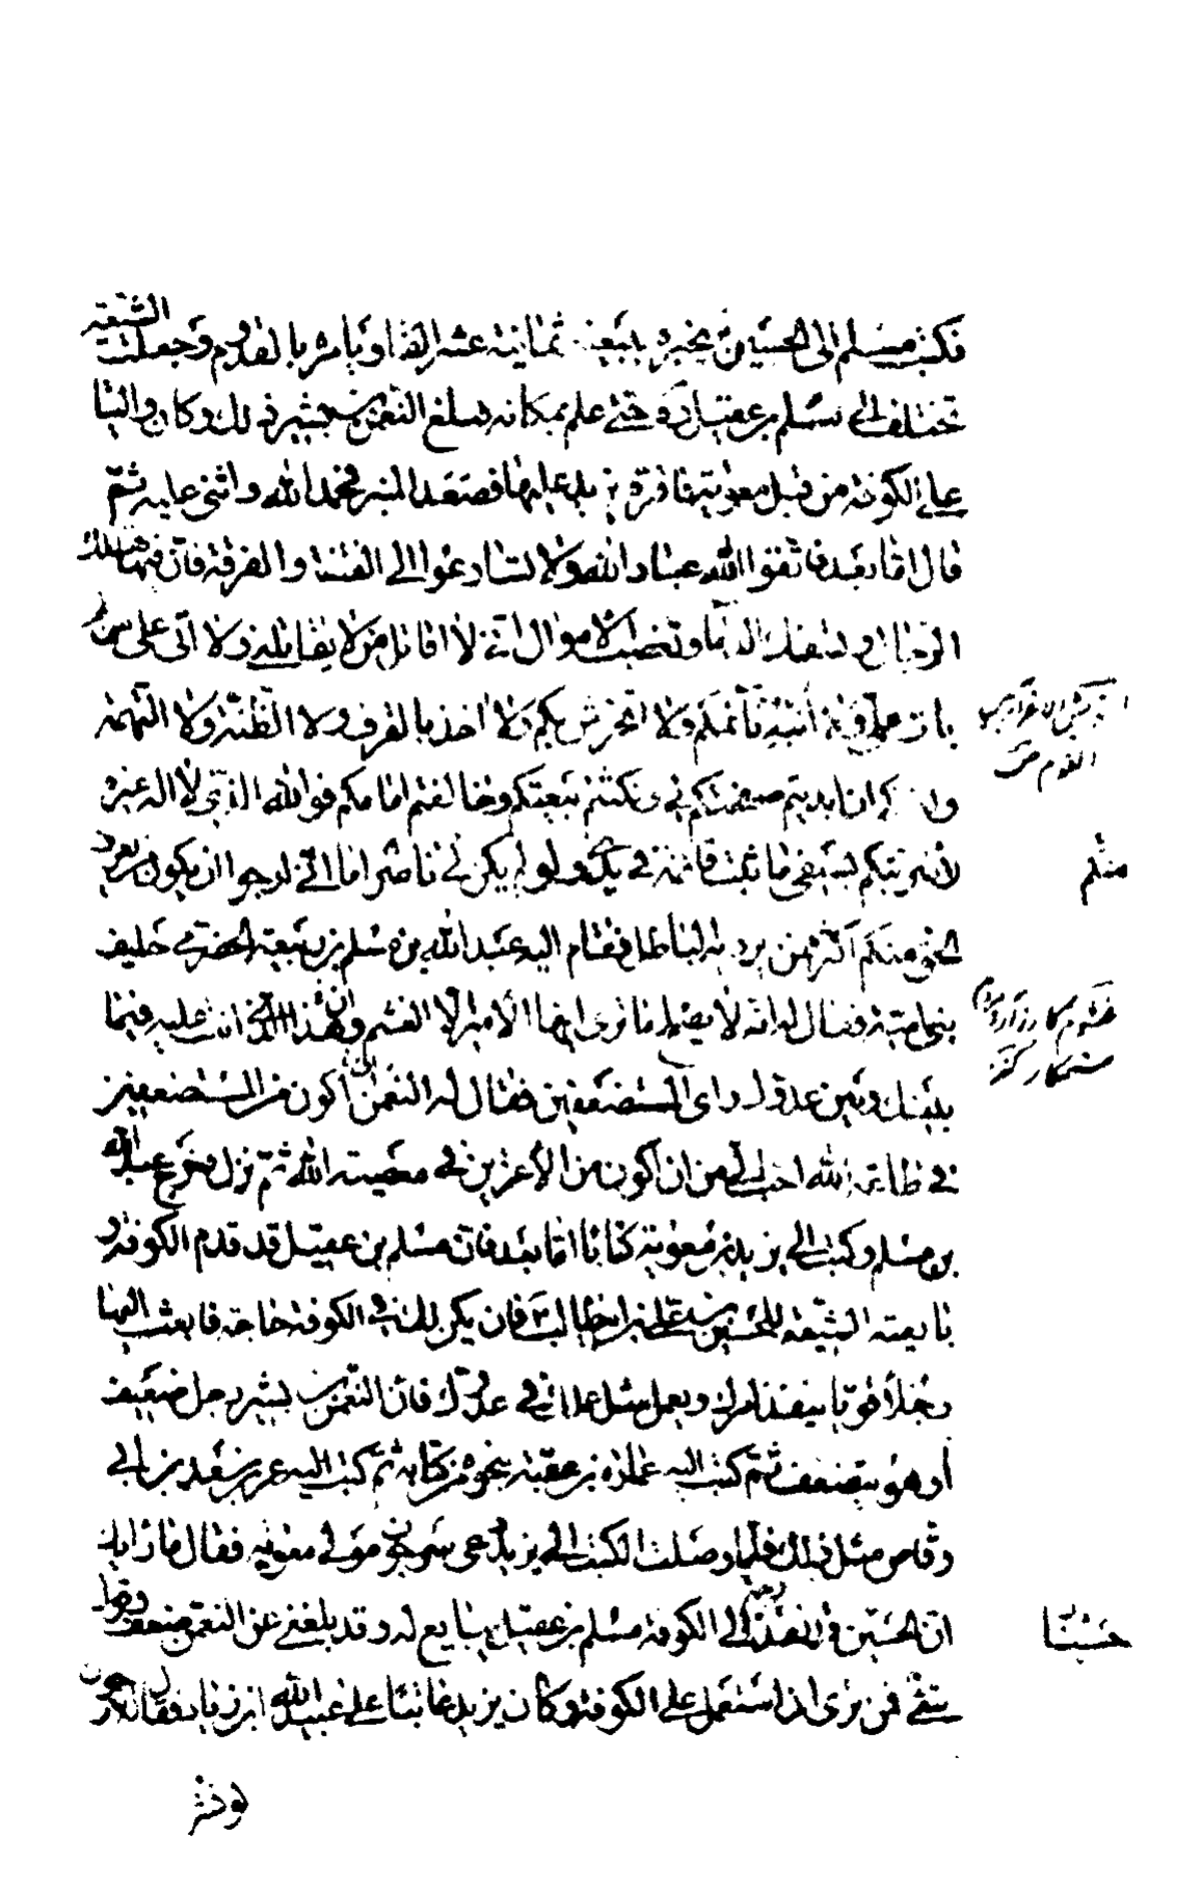 فكتب مسلم الى الحسين ع يخبره ببيعة ثمانية عشر الفا ويامره بالقدوم وجعلت الشيعة
تختلف الى مسلم بن عقيل ره حتى علم بمكانه فبلغ النعمن بن بشير ذلك وكان واليا
على الكوفة من قبل معوية فاقره يزيد عليها فصعد المنبر فحمد الله واثنى عليه ثم
قال اما بعد فاتقوا الله عباد الله ولا تسارعوا الى الفتنة والفرقة فان فيها تهلك
الرجال وتسفك الدماء وتغصب الاموال اني لا اقاتل من لا يقاتلني ولا اتى على من لم
يات علي ولا انبه نائمكم ولا اتحرش بكم ولا اخذ بالقرف ولا الظنة ولا التهمة
ولكنكم ان ابديتم صفحتكم لي ونكثتم بيعتكم وخالفتم امامكم فوالله الذي لا اله غيره
لاضربنكم بسيفي ما ثبت قائمة في يدي ولو لم يكن لي ناصر اما اني ارجو ان يكون من يعرف
الحق منكم اكثر ممن يرديه الباطل فقام اليه عبد الله بن مسلم بن ربيعة الحضرمي حليف
بني امية فقال له انه لا يصلح ما ترى ايها الامير الا الغشم وان هذا الذي انت عليه فيما
بينك وبين عدوك راى المستضعفين فقال له النعمن لان اكون من المستضعفين
في طاعة الله احب الي من ان اكون من الاعزين في معصية الله ثم نزل وخرج عبد الله
بن مسلم وكتب الى يزيد بن معوية كتابا اما بعد فان مسلم بن عقيل قد قدم الكوفة و
بايعته الشيعة للحسين بن علي بن ابي طالب فان يكن لك في الكوفة حاجة فابعث اليها
رجلا قويا ينفذ امرك ويعمل مثل عملك في عدوك فان النعمن بن بشير رجل ضعيف
او هو يتضعف ثم كتب اليه عمارة بن عقبة بنحو من كتابه ثم كتب اليه عمر بن سعد بن ابي
وقاص مثل ذلك فلما وصلت الكتب الى يزيد دعى سرجون مولى معوية فقال ما رايك
ان الحسين قد نفذ الى الكوفة مسلم بن عقيل يبايع له وقد بلغني عن النعمن ضعف وقول
سيئ فمن ترى ان استعمل على الكوفة وكان يزيد عاتبا على عبيد الله ابن زياد فقال له سرجون
القوم
مثلم
غشوم
ستمكار
حسينا